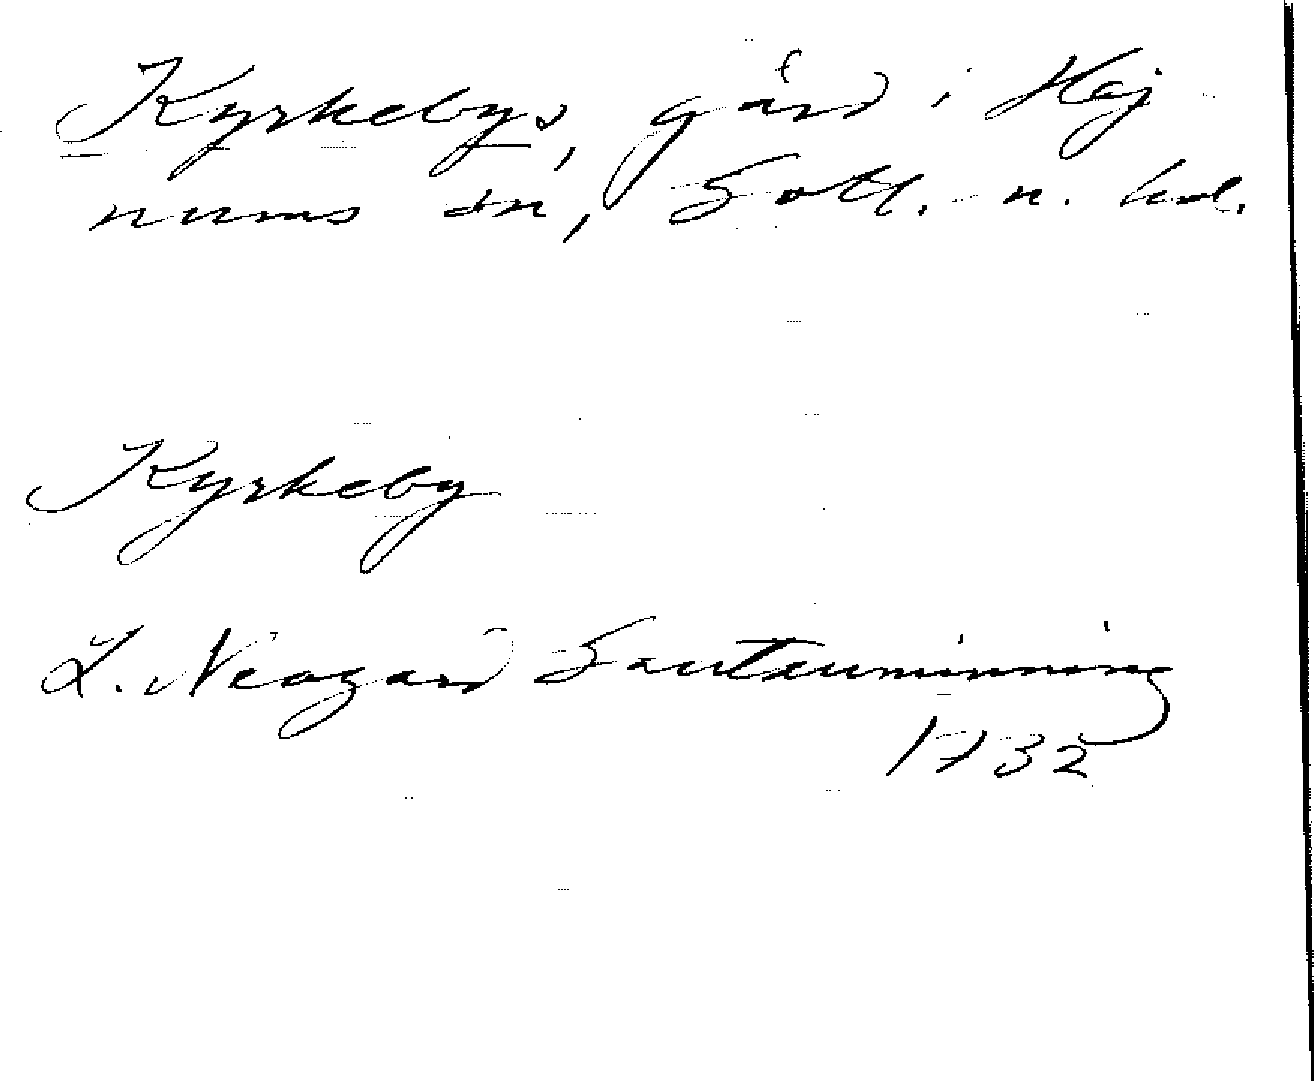 Kyrkebys, gård i Hej
nums sn, Gotl. n. hd.
Kyrkeby
L. Neogard Gautauminning
1732